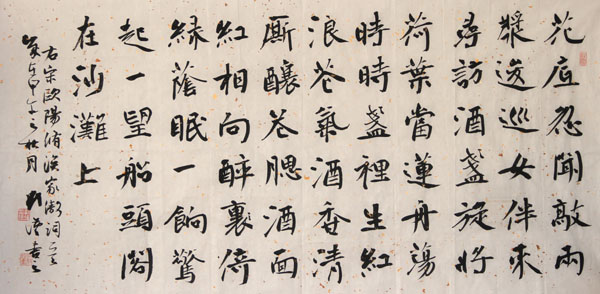 花底忽聞敲兩
槳逡巡女伴來
尋訪酒盞旋將
荷葉當蓮舟蕩
時時盞裡生紅
浪花氣酒香清
廝釀花腮酒面
紅相向醉裏倚
緑蔭眠一餉驚
起一望船頭閣
在沙灘上
右宋歐陽脩漁家傲詞
歲在甲午之秋月